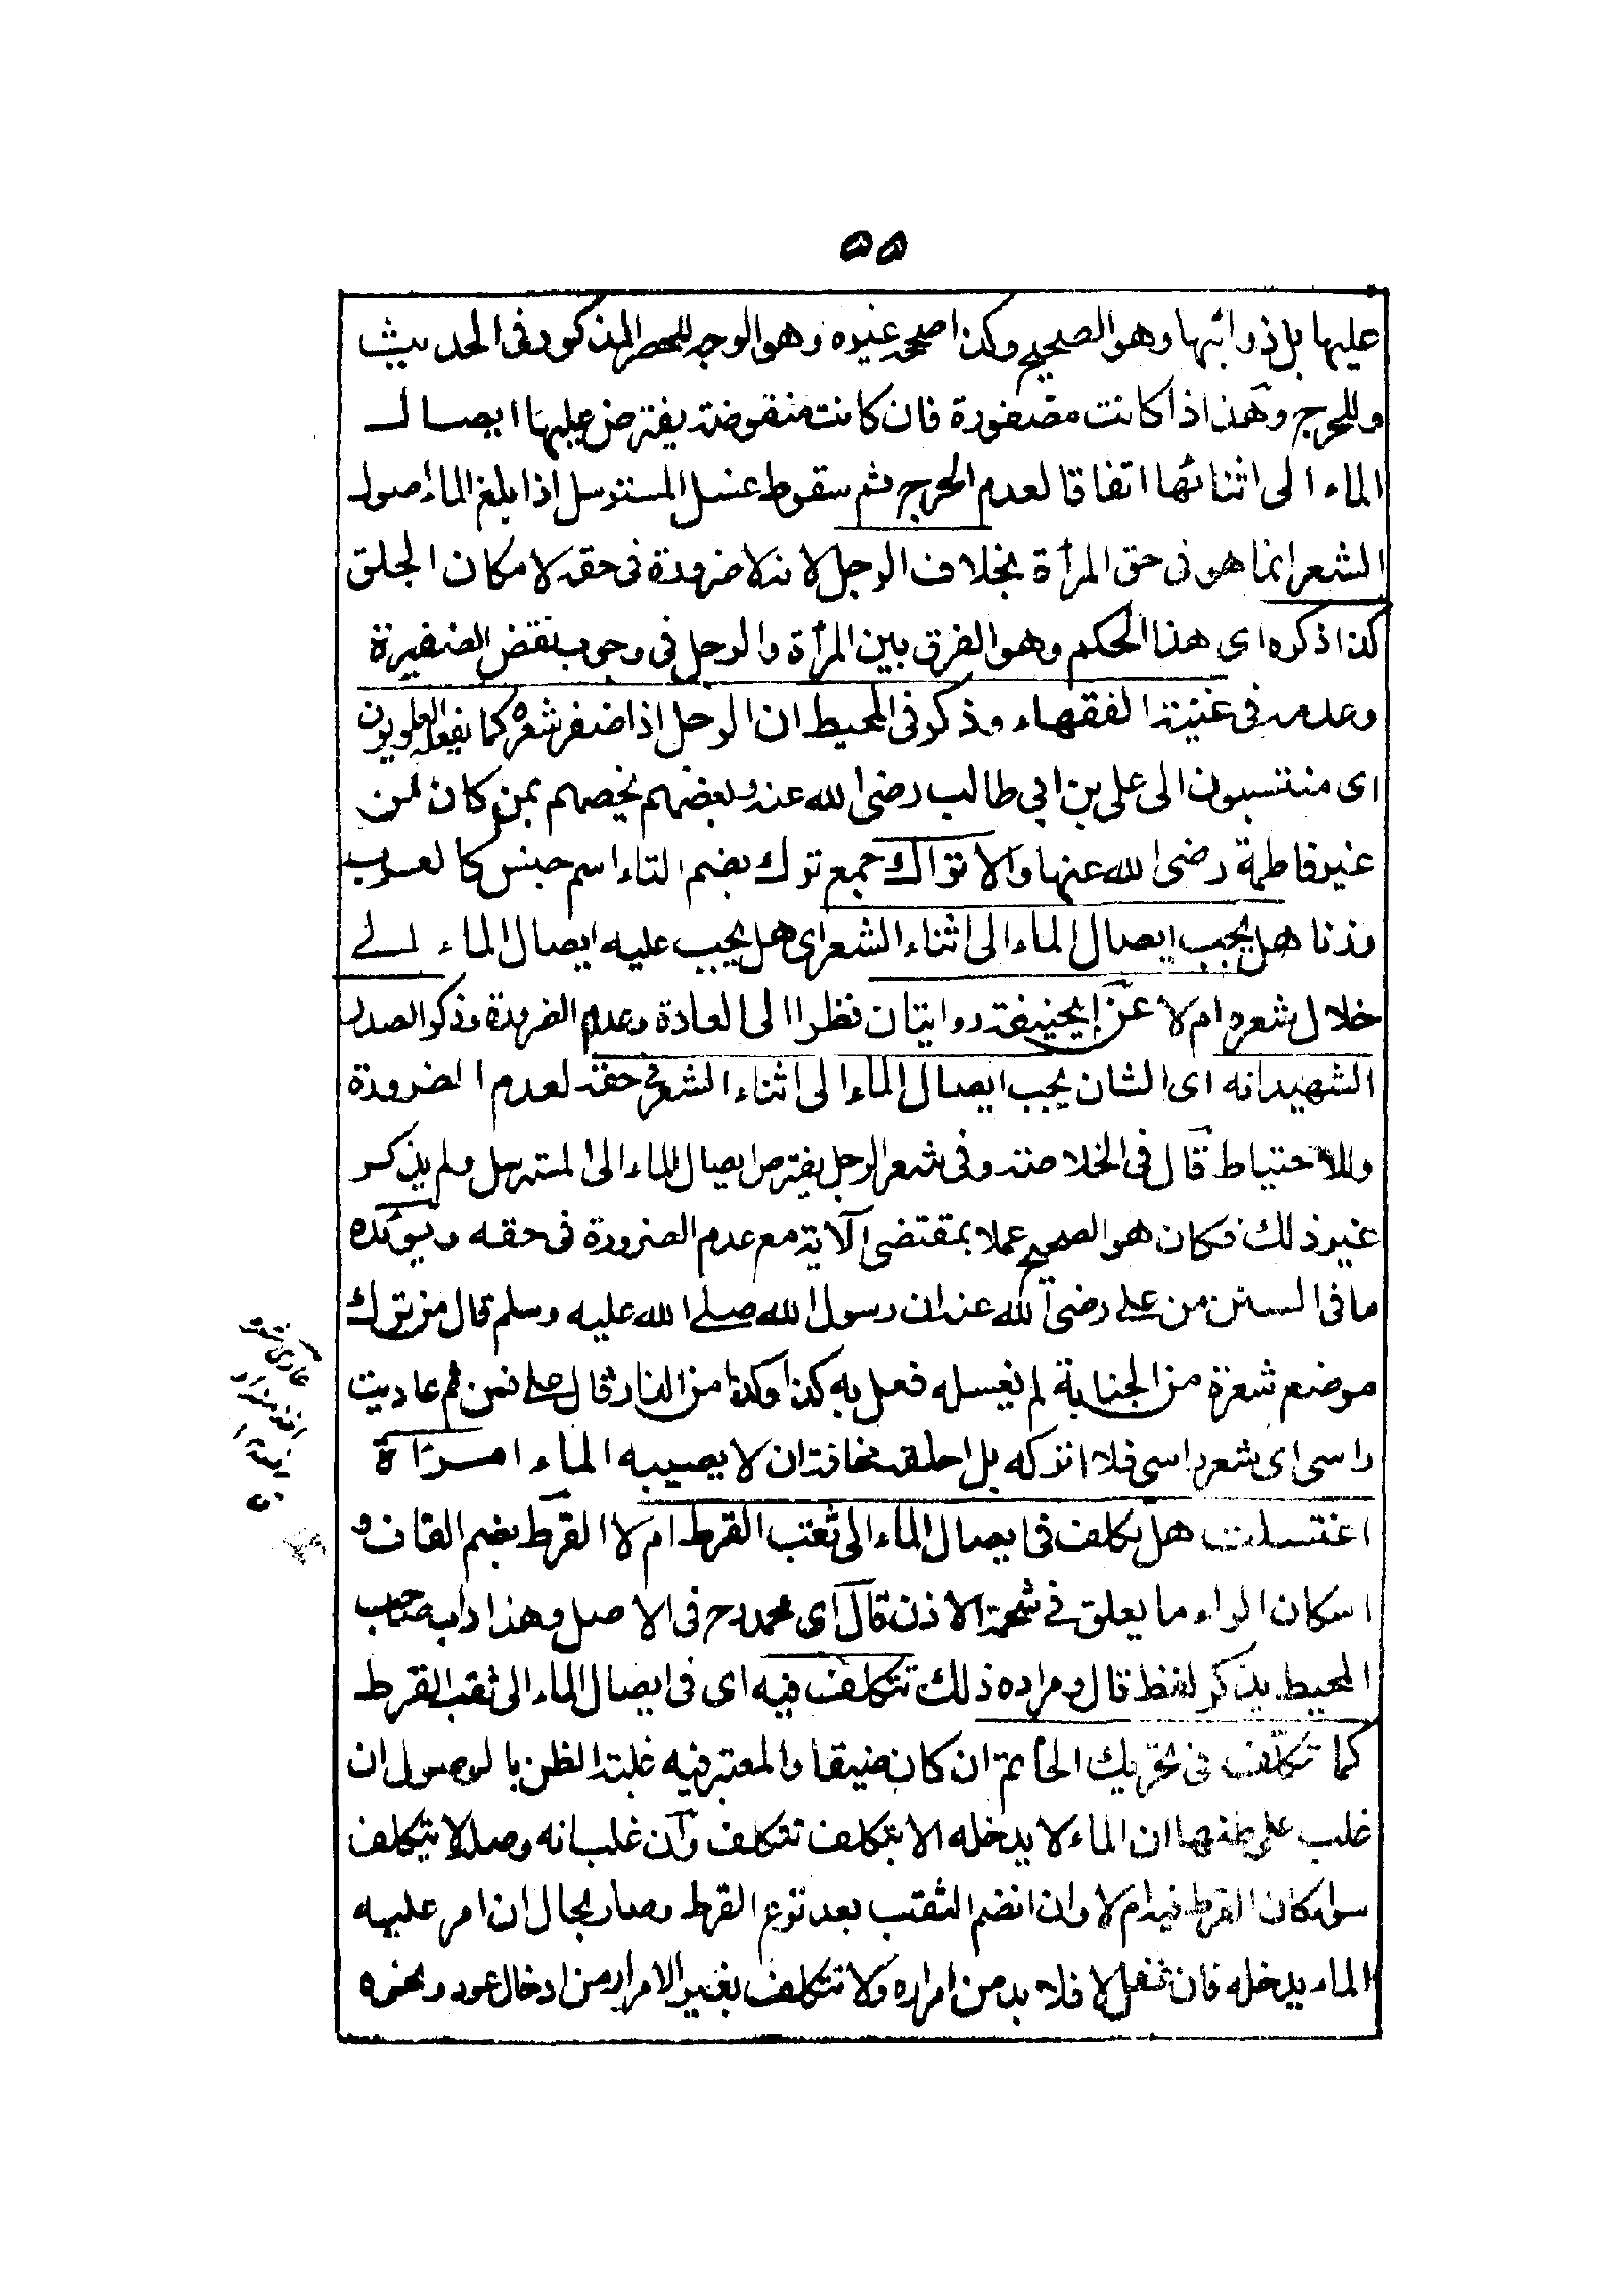 ۵۵
عليها بل ذوائبها وهو الصحيح وكذا صححه غيره وهو الوجه للحصر المذكور فى الحديث
وللحرج وهذا اذا كانت مضفورة فان كانت منقوضة يفترض عليها ايصال
الماء الى اثنائها اتفاقا لعدم الحرج ثم سقوط غسل المسترسل اذا بلغ الماء اصول
الشعر انما هو فى حق المرأة بخلاف الرجل لانه لا ضرورة فى حقه لامكان الحلق
كذا ذكره اى هذا الحكم وهو الفرق بين المرأة والرجل فى وجوب نقض الضفيرة
وعدمه فى غنية الفقهاء وذكر فى المحيط ان الرجل اذا ضفر شعره كما يفعله العلويون
اى منتسبون الى على بن ابى طالب رضى الله عنه وبعضهم يخصهم بمن كان من
غير فاطمة رضى الله عنها والاتراك جمع ترك بضم التاء اسم جنس كالعرب
وزنا هل يجب ايصال الماء الى اثناء الشعر اى هل يجب عليه ايصال الماء الى
خلال شعره ام لا عن ابيحنيفة روايتان نظرا الى العادة وعدم الضرورة وذكر الصدر
الشهيد انه اى الشان يجب ايصال الماء الى اثناء الشعر فى حقه لعدم الضرورة
وللاحتياط قال فى الخلاصة وفى شعر الرجل يفترض ايصال الماء الى المسترسل ولم يذكر
غير ذلك فكان هو الصحيح عملا بمقتضى الآية مع عدم الضرورة فى حقه ويؤيده
ما فى السنن من على رضى الله عنه ان رسول الله صلى الله عليه وسلم قال من ترك
موضع شعرة من الجنابة لم يغسله فعل به كذا وكذا من النار قال على فمن ثم عاديت
راسى اى شعر راسى فلا اتركه بل احلقه مخافة ان لا يصيبه الماء امرأة
اغتسلت هل تكلف فى ايصال الماء الى ثقب القرط ام لا القرط بضم القاف و
اسكان الراء ما يعلق فى شحمة الاذن قال اى محمد رح فى الاصل وهذا داب صاحب
المحيط يذكر لفظ قال ومراده ذلك تتكلف فيه اى فى ايصال الماء الى ثقب القرط
كما تتكلف فى تحريك الخاتم ان كان ضيقا والمعتبر فيه غلبة الظن بالوصول ان
غلب على ظنها ان الماء لا يدخله الا بتكلف تتكلف وان غلب انه وصله لا يتكلف
سواء كان القرط فيه ام لا وان انضم الثقب بعد نزع القرط وصار بحال ان امر عليه
الماء يدخله فان غفل لا فلا بد من امراره ولا تتكلف بغير الامرار من ادخال عود ونحوه